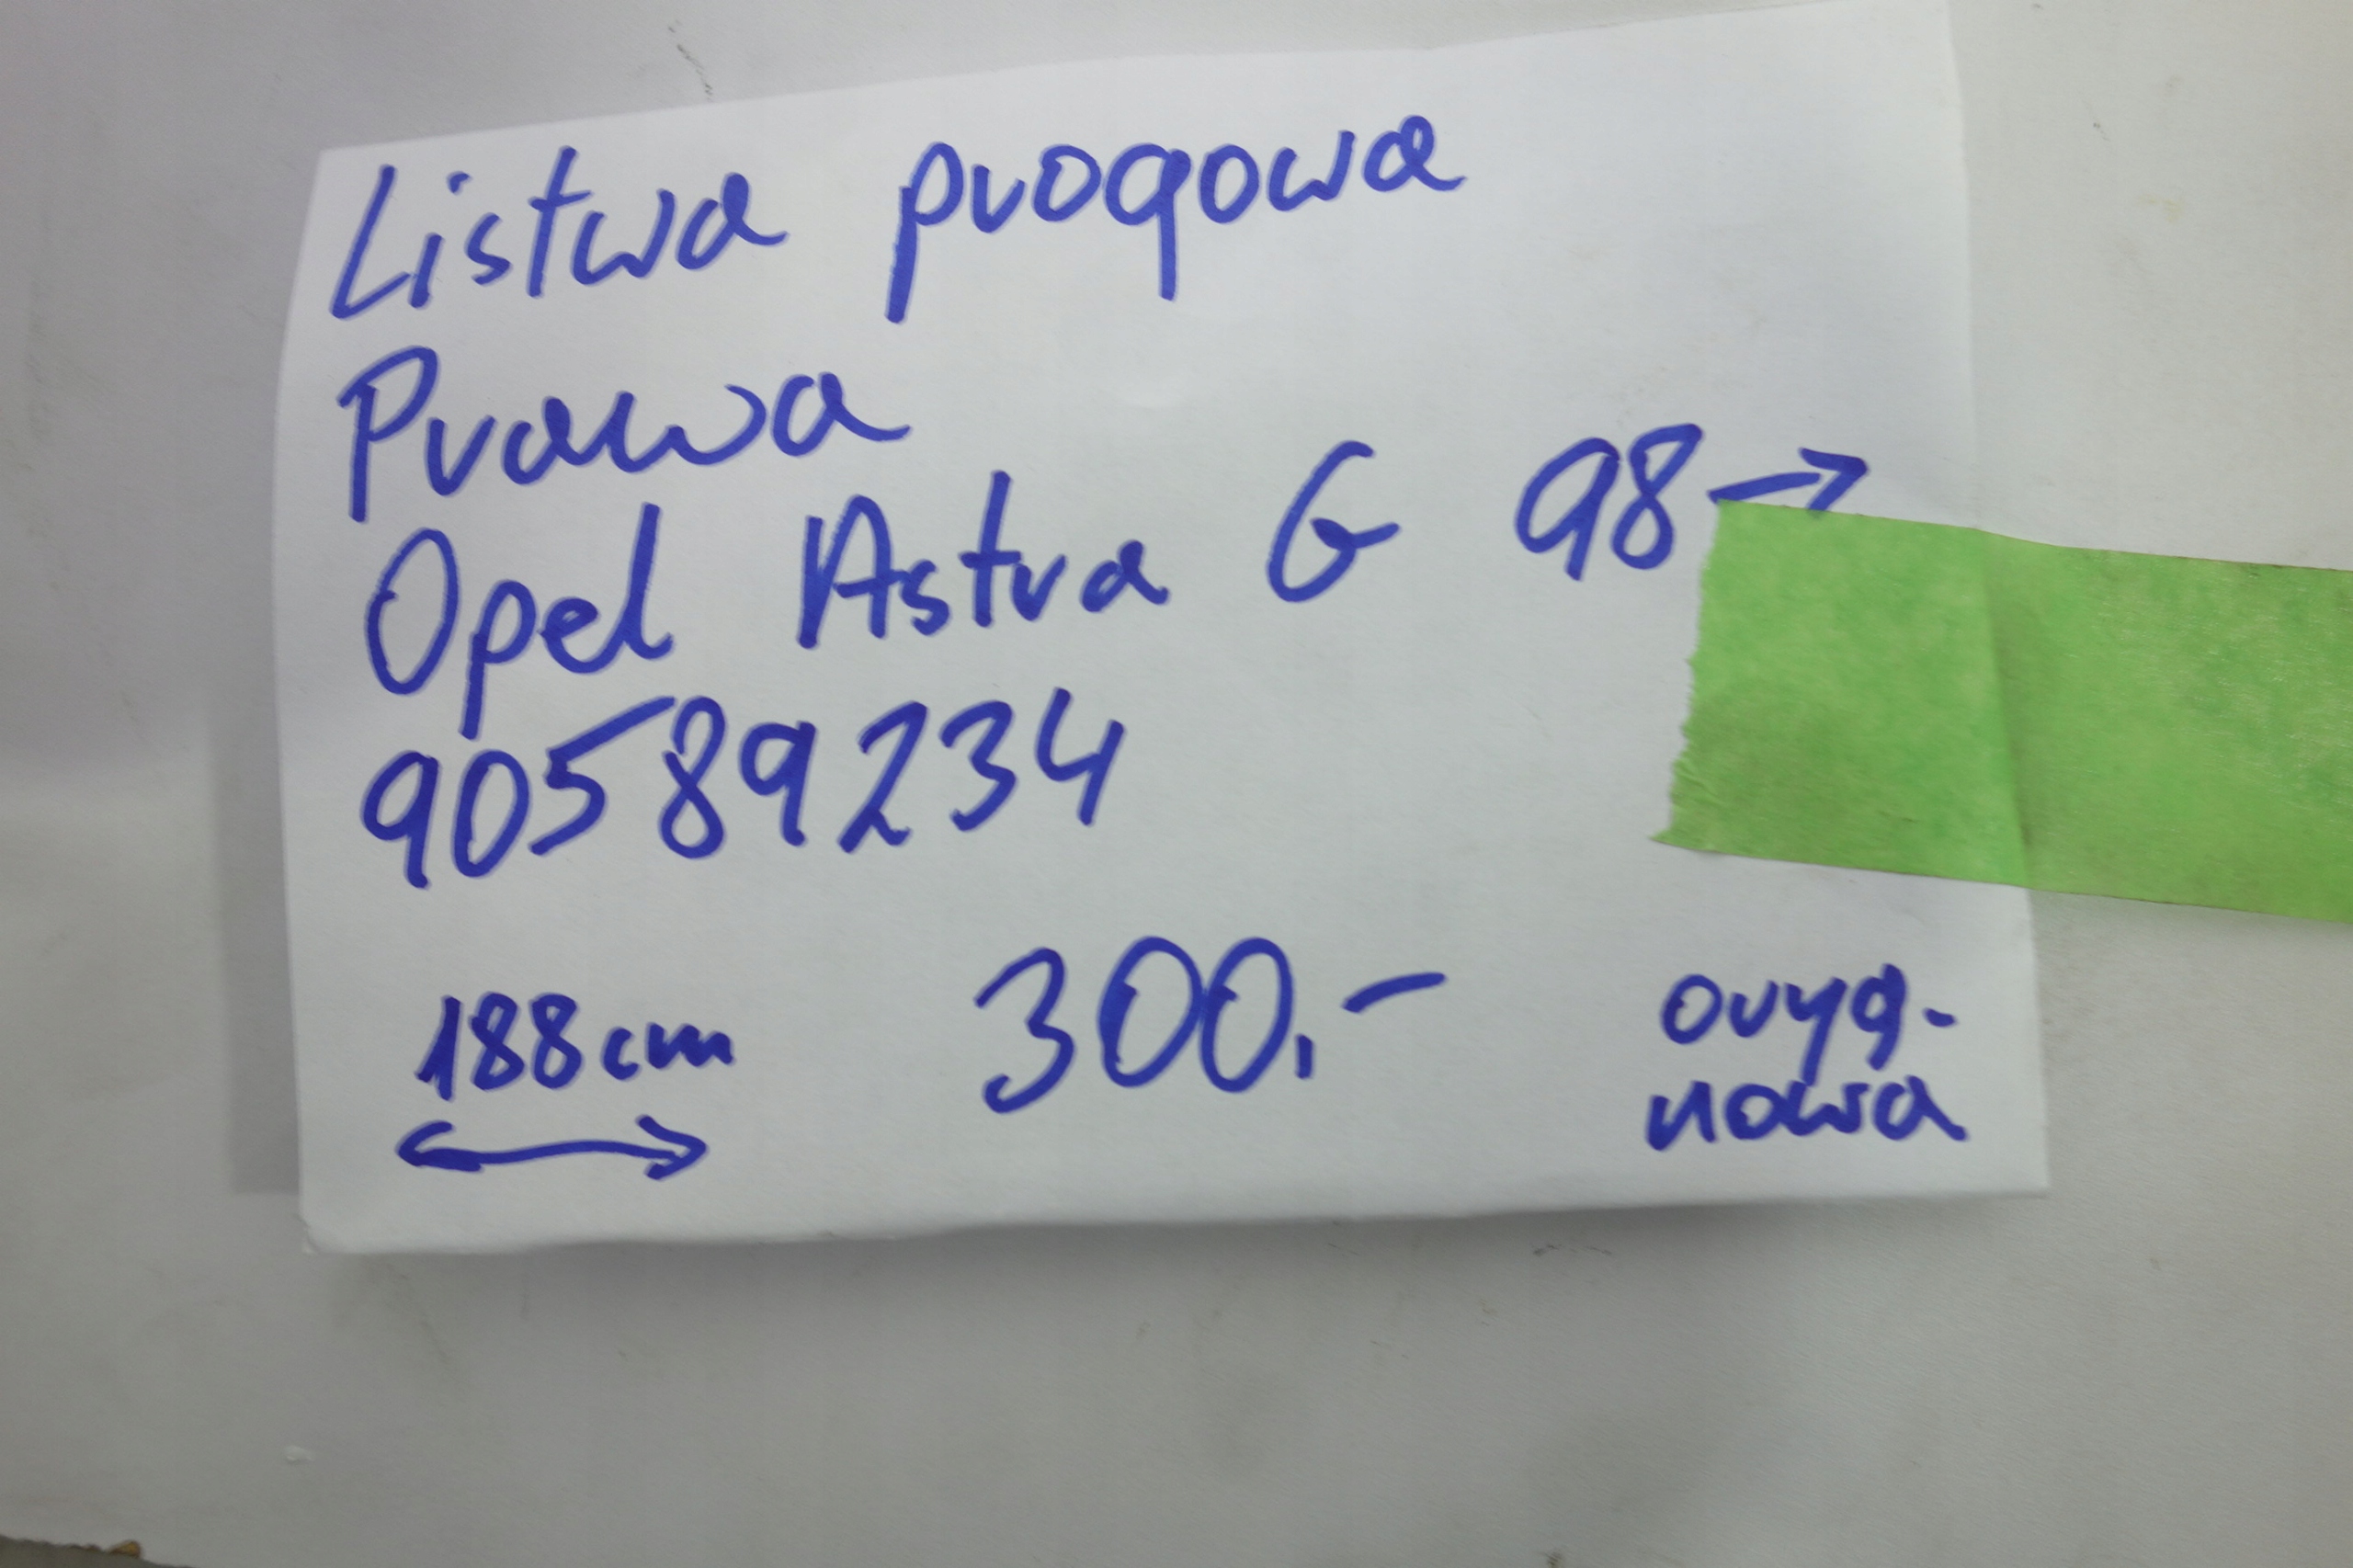 Listwa progowa
Prawa
Opel Astra G 98→
90589234
188cm 300.- oryg.
↔ nowa